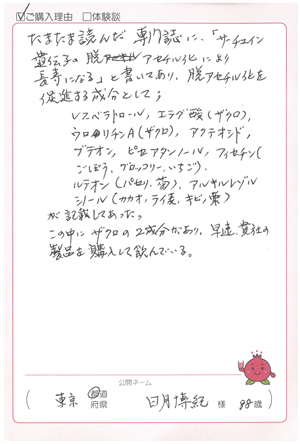 ☑ご購入理由 ☐体験談
たまたま読んだ専門誌に、「サーチュイン
遺伝子の脱アセチル化により
長寿になる」と書いてあり、脱アセチル化を
促進する成分として；
レスベラトロール，エラグ酸（ザクロ），
ウロリチンA（ザクロ），アクテオシド，
ブテイン，ピセアタンノール，フィセチン（
ごぼう，ブロッコリー，いちご），
ルテオリン（パセリ，菊），アルキルレゾル
シノール（カカオ，ライ麦，キビ，粟）
が記載してあった。
この中にザクロの2成分があり、早速、貴社の
製品を購入して飲んでいる。
公開ネーム
（ 東京 都道府県 日月博紀 様 88歳 ）